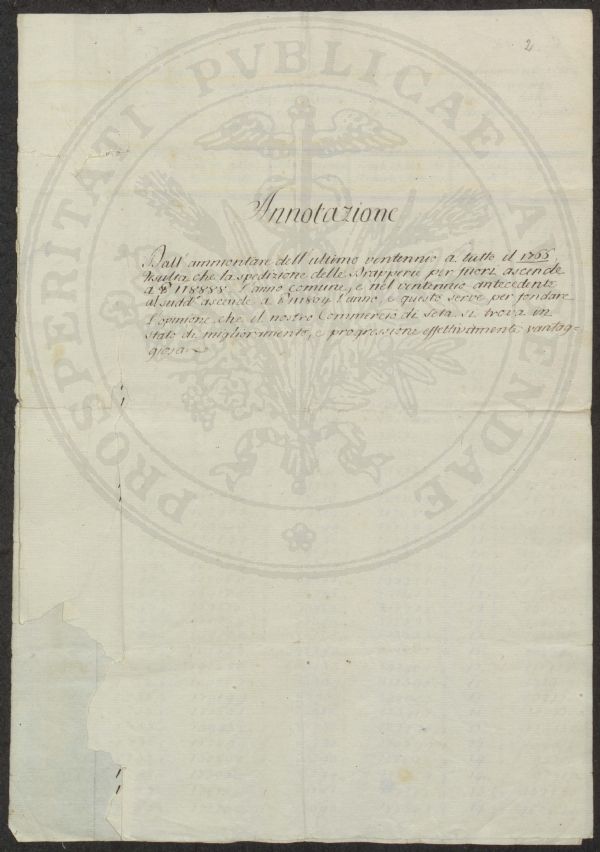 2
PROSPERITATI PVBLICAE AVGENDAE
Annotazione
Dall' ammontare dell' ultimo ventennio a tutto il 1766
risulta che la spedizione delle Drapperie per fuori ascende
a 118888. l'anno comune, e nel ventennio antecedente
al sudd.º ascende a l'anno, e questo serve per fondare
l'opinione che il nostro Commercio di Seta si trova in
stato di miglioramento, e progressione effettivamente vantag=
giosa